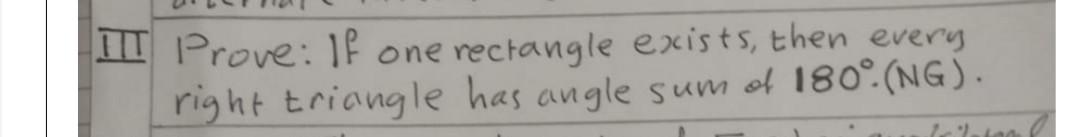 III Prove: If one rectangle exists, then every
right triangle has angle sum of 180°.(NG).